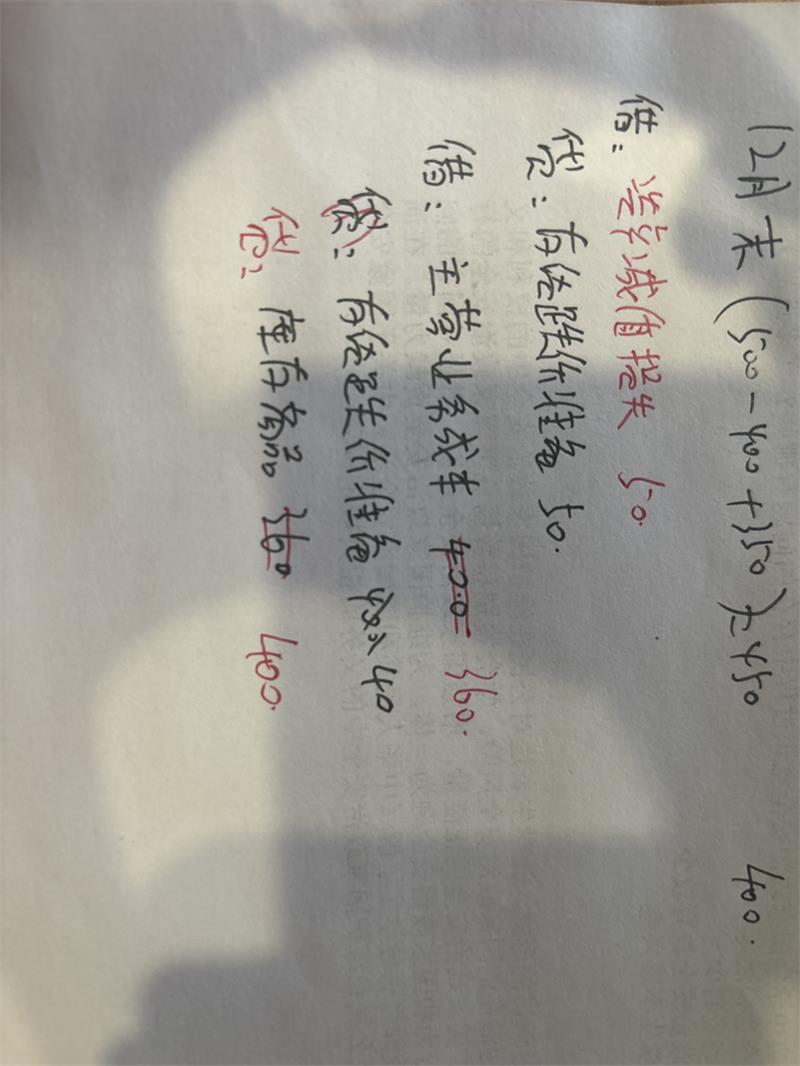 12月末(500-400+350)=450 400.
借:资产减值损失 50.
贷:存货跌价准备 50.
借:主营业务成本 400 360.
贷:存货跌价准备 40
贷:库存商品 360 400.